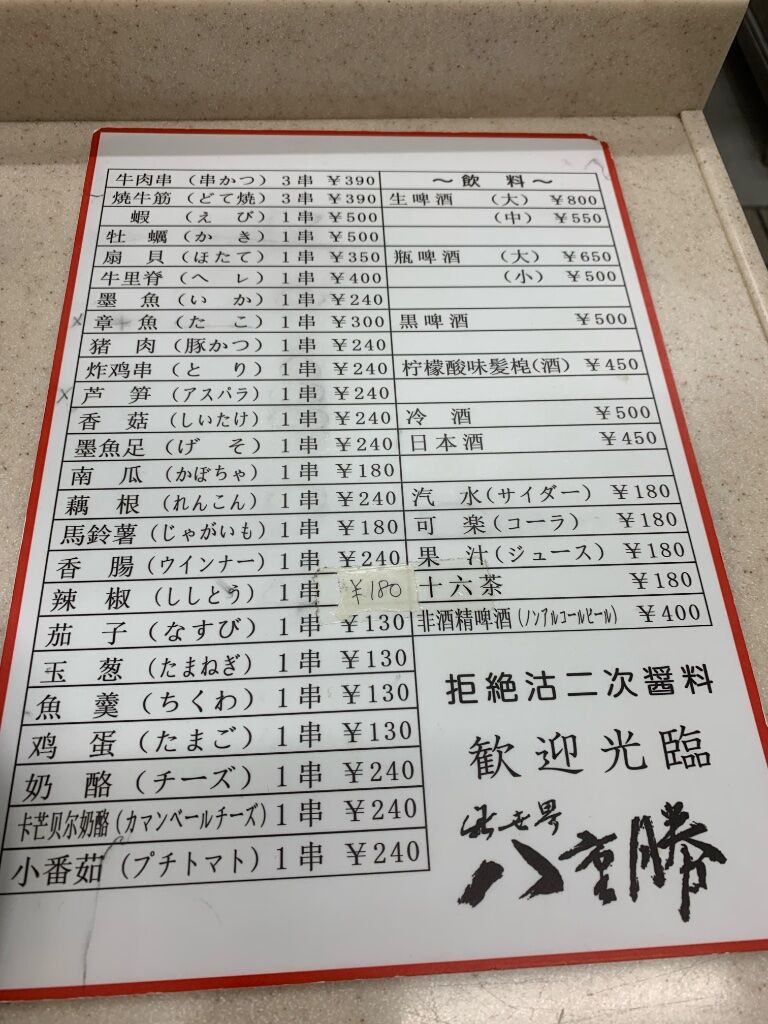 牛肉串（串かつ）3串 ￥390
焼牛筋（どて焼）3串 ￥390
蝦（えび）1串 ￥500
牡蠣（かき）1串 ￥500
扇貝（ほたて）1串 ￥350
牛里脊（ヘレ）1串 ￥400
墨魚（いか）1串 ￥240
章魚（たこ）1串 ￥300
猪肉（豚かつ）1串 ￥240
炸鸡串（とり）1串 ￥240
芦笋（アスパラ）1串 ￥240
香菇（しいたけ）1串 ￥240
墨魚足（げそ）1串 ￥240
南瓜（かぼちゃ）1串 ￥180
藕根（れんこん）1串 ￥240
馬鈴薯（じゃがいも）1串 ￥180
香腸（ウインナー）1串 ￥240
辣椒（ししとう）1串 ￥180
茄子（なすび）1串 ￥130
玉葱（たまねぎ）1串 ￥130
魚羹（ちくわ）1串 ￥130
鸡蛋（たまご）1串 ￥130
奶酪（チーズ）1串 ￥240
卡芒贝尔奶酪（カマンベールチーズ）1串 ￥240
小番茄（プチトマト）1串 ￥240
～飲料～
生啤酒（大）￥800
（中）￥550
瓶啤酒（大）￥650
（小）￥500
黒啤酒 ￥500
柠檬酸味髪梍(酒) ￥450
冷酒 ￥500
日本酒 ￥450
汽水（サイダー）￥180
可楽（コーラ）￥180
果汁（ジュース）￥180
十六茶 ￥180
非酒精啤酒（ノンアルコールビール）￥400
拒絶沾二次醤料
歓迎光臨
八重勝